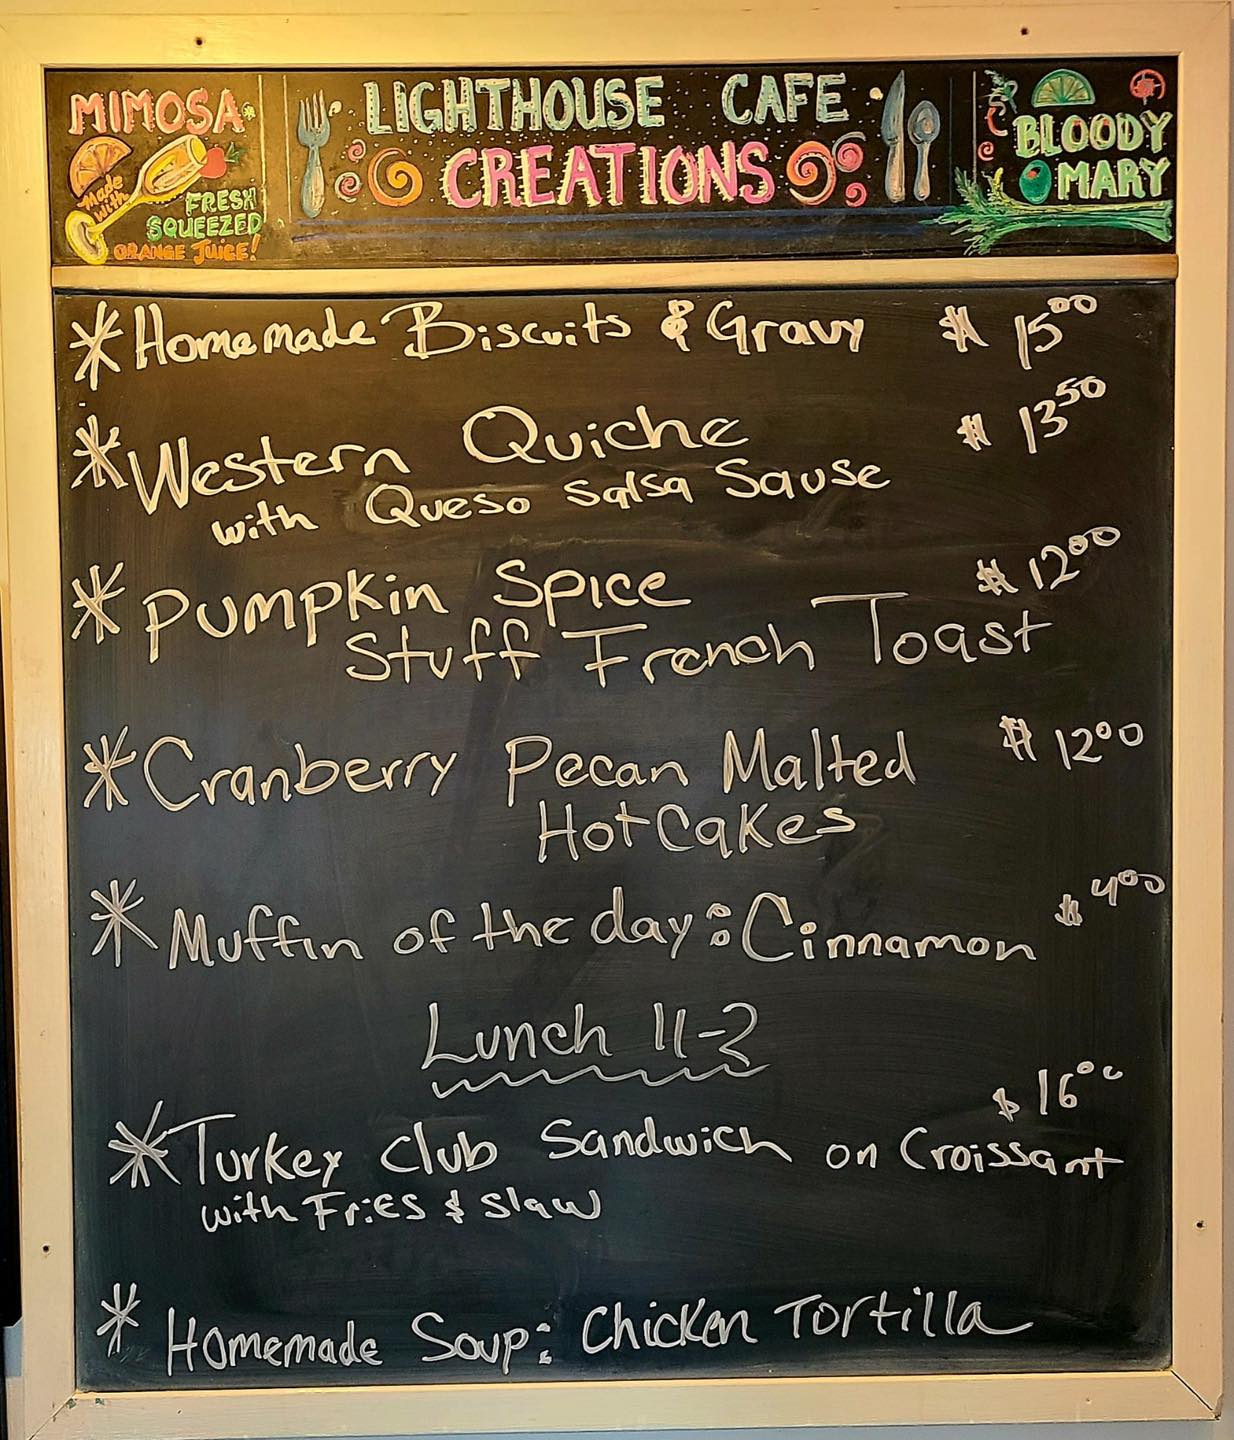 MIMOSA
Made with
FRESH
SQUEEZED
ORANGE JUICE!
LIGHTHOUSE CAFE
CREATIONS
BLOODY
MARY
* Homemade Biscuits & Gravy $ 15.00
* Western Quiche $ 13.50
with Queso Salsa Sause
* Pumpkin Spice $ 12.00
Stuff French Toast
* Cranberry Pecan Malted $ 12.00
HotCakes
* Muffin of the day: Cinnamon $ 4.00
Lunch 11-2
$ 16.00
* Turkey Club Sandwich on Croissant
with Fries & slaw
* Homemade Soup: Chicken Tortilla